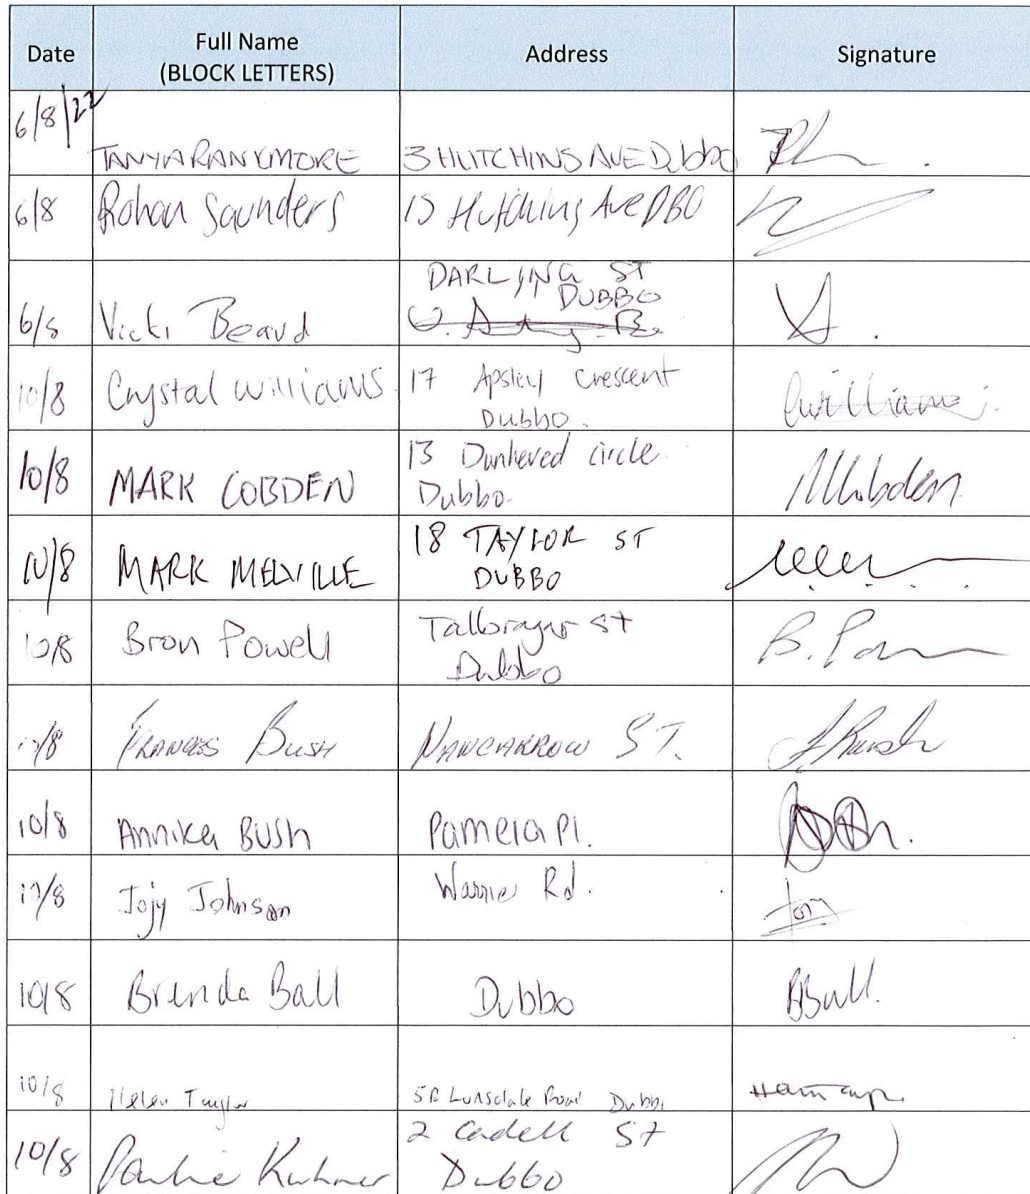 Date
Full Name
(BLOCK LETTERS)
Address
Signature
6/8/22
TANYA RANKMORE
3 HUTCHINS AVE Dubbo
6/8
Rohan Saunders
15 Hutchins Ave DBO
6/8
Vicki Beard
DARLING ST
DUBBO
10/8
Crystal Williams
17 Apsley Crescent
Dubbo.
CWilliams.
10/8
MARK COBDEN
13 Dunheved circle
Dubbo.
MCobden
10/8
MARK MELVILLE
18 TAYLOR ST
DUBBO
10/8
Bron Powell
Talbragar st
Dubbo
B. Pow
10/8
FRANCES BUSH
NANCARROW ST.
FBush
10/8
Annika BUSH
Pamela Pl.
10/8
Jojy Johnson
Rd.
10/8
Brenda Ball
Dubbo
BBall.
10/8
Helen Taylor
Road Dubbo
10/8
2 Cadell St
Dubbo